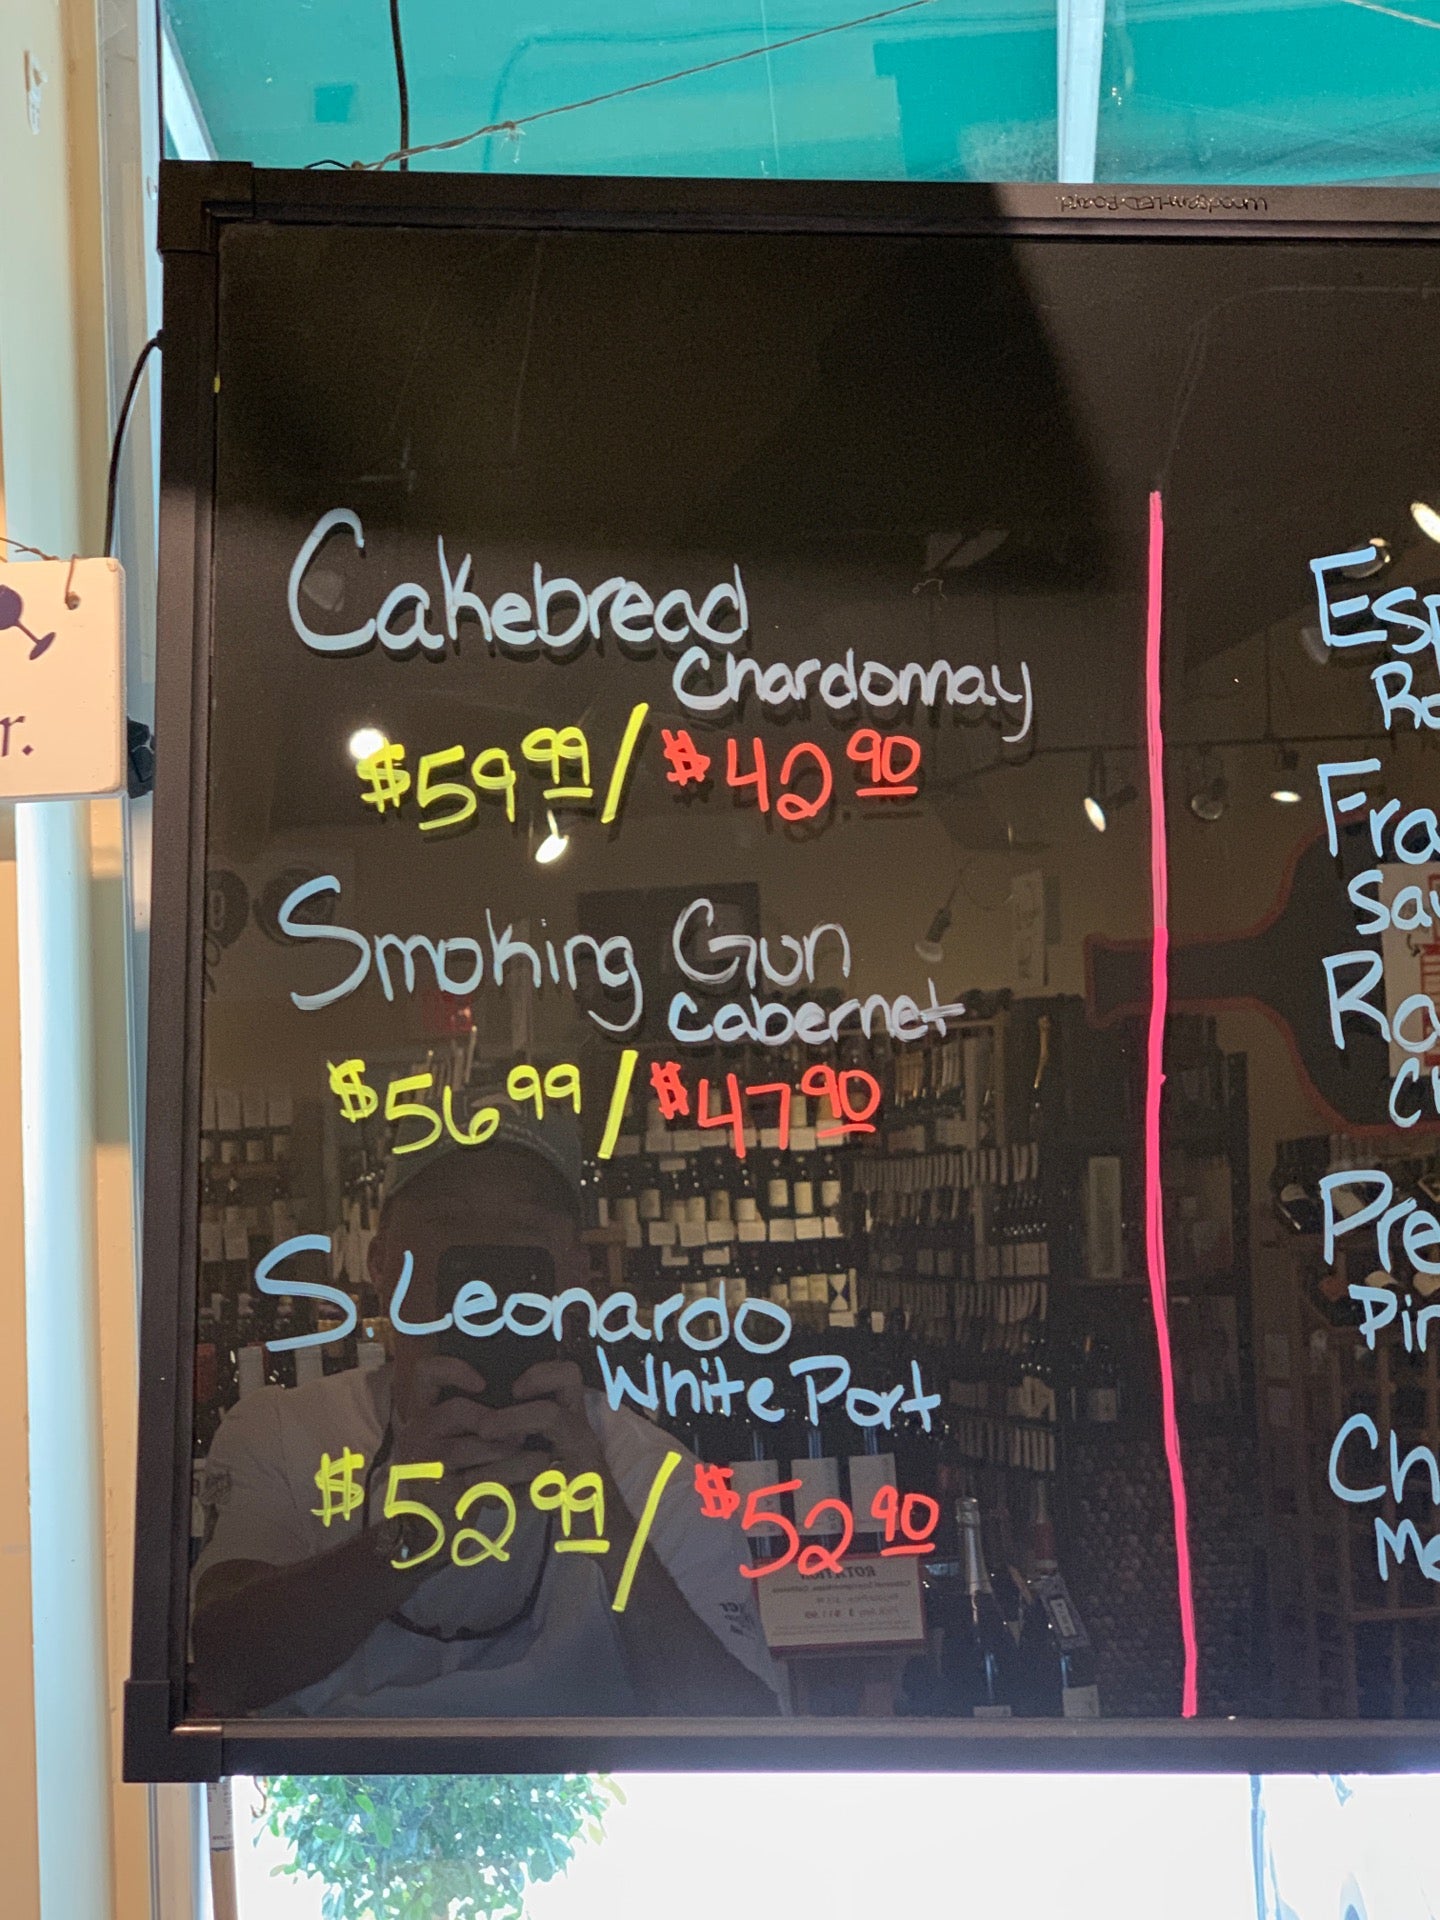 Cakebread
Chardonnay
$59 99 / $42 90
Smoking Gun
Cabernet
$56 99 / $47 90
S. Leonardo
White Port
$52 99 / $52 90
Esp
Fra
Sav
Pre
Pin
Ch
Me
r.